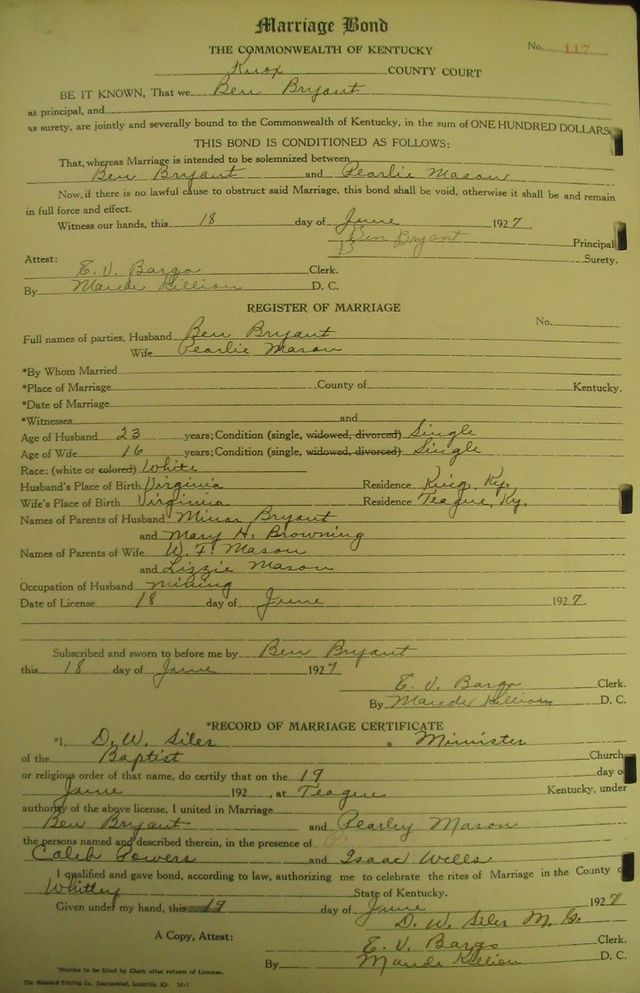 Marriage Bond
THE COMMONWEALTH OF KENTUCKY No. 117
Knox COUNTY COURT
BE IT KNOWN, That we Ben Bryant
as principal, and
as surety, are jointly and severally bound to the Commonwealth of Kentucky, in the sum of ONE HUNDRED DOLLARS
THIS BOND IS CONDITIONED AS FOLLOWS:
That, whereas Marriage is intended to be solemnized between
Ben Bryant and Pearlie Mason
Now, if there is no lawful cause to obstruct said Marriage, this bond shall be void, otherwise it shall be and remain
in full force and effect.
Witness our hands, this 18 day of June 1927.
Ben Bryant Principal
Surety.
Attest:
E. V. Bargo Clerk.
By Maude Killion D. C.
REGISTER OF MARRIAGE
No.
Full names of parties, Husband Ben Bryant
Wife Pearlie Mason
*By Whom Married
*Place of Marriage County of Kentucky.
*Date of Marriage
*Witnesses and
Age of Husband 23 years; Condition (single, widowed, divorced) Single
Age of Wife 16 years; Condition (single, widowed, divorced) Single
Race: (white or colored) White
Husband's Place of Birth Virginia Residence King, Ky.
Wife's Place of Birth Virginia Residence Teague, Ky.
Names of Parents of Husband Minor Bryant
and Mary H. Browning
Names of Parents of Wife W. F. Mason
and Lizzie Mason
Occupation of Husband mining
Date of License 18 day of June 1927.
Subscribed and sworn to before me by Ben Bryant
this 18 day of June 1927
E. V. Bargo Clerk.
By Maude Killion D. C.
*RECORD OF MARRIAGE CERTIFICATE
*I, D. W. Siler a Minister
of the Baptist Church
or religious order of that name, do certify that on the 19 day o
June 192 , at Teague Kentucky, under
authority of the above license, I united in Marriage
Ben Bryant and Pearley Mason
the persons named and described therein, in the presence of
Caleb Powers and Isaac Wells
I qualified and gave bond, according to law, authorizing me to celebrate the rites of Marriage in the County o
Whitley State of Kentucky.
Given under my hand, this 19 day of June 1927
D. W. Siler M. G.
A Copy, Attest: E. V. Bargo Clerk.
By Maude Killion D. C.
*Blanks to be filled by Clerk after return of License.
The Standard Printing Co., Incorporated, Louisville, Ky.